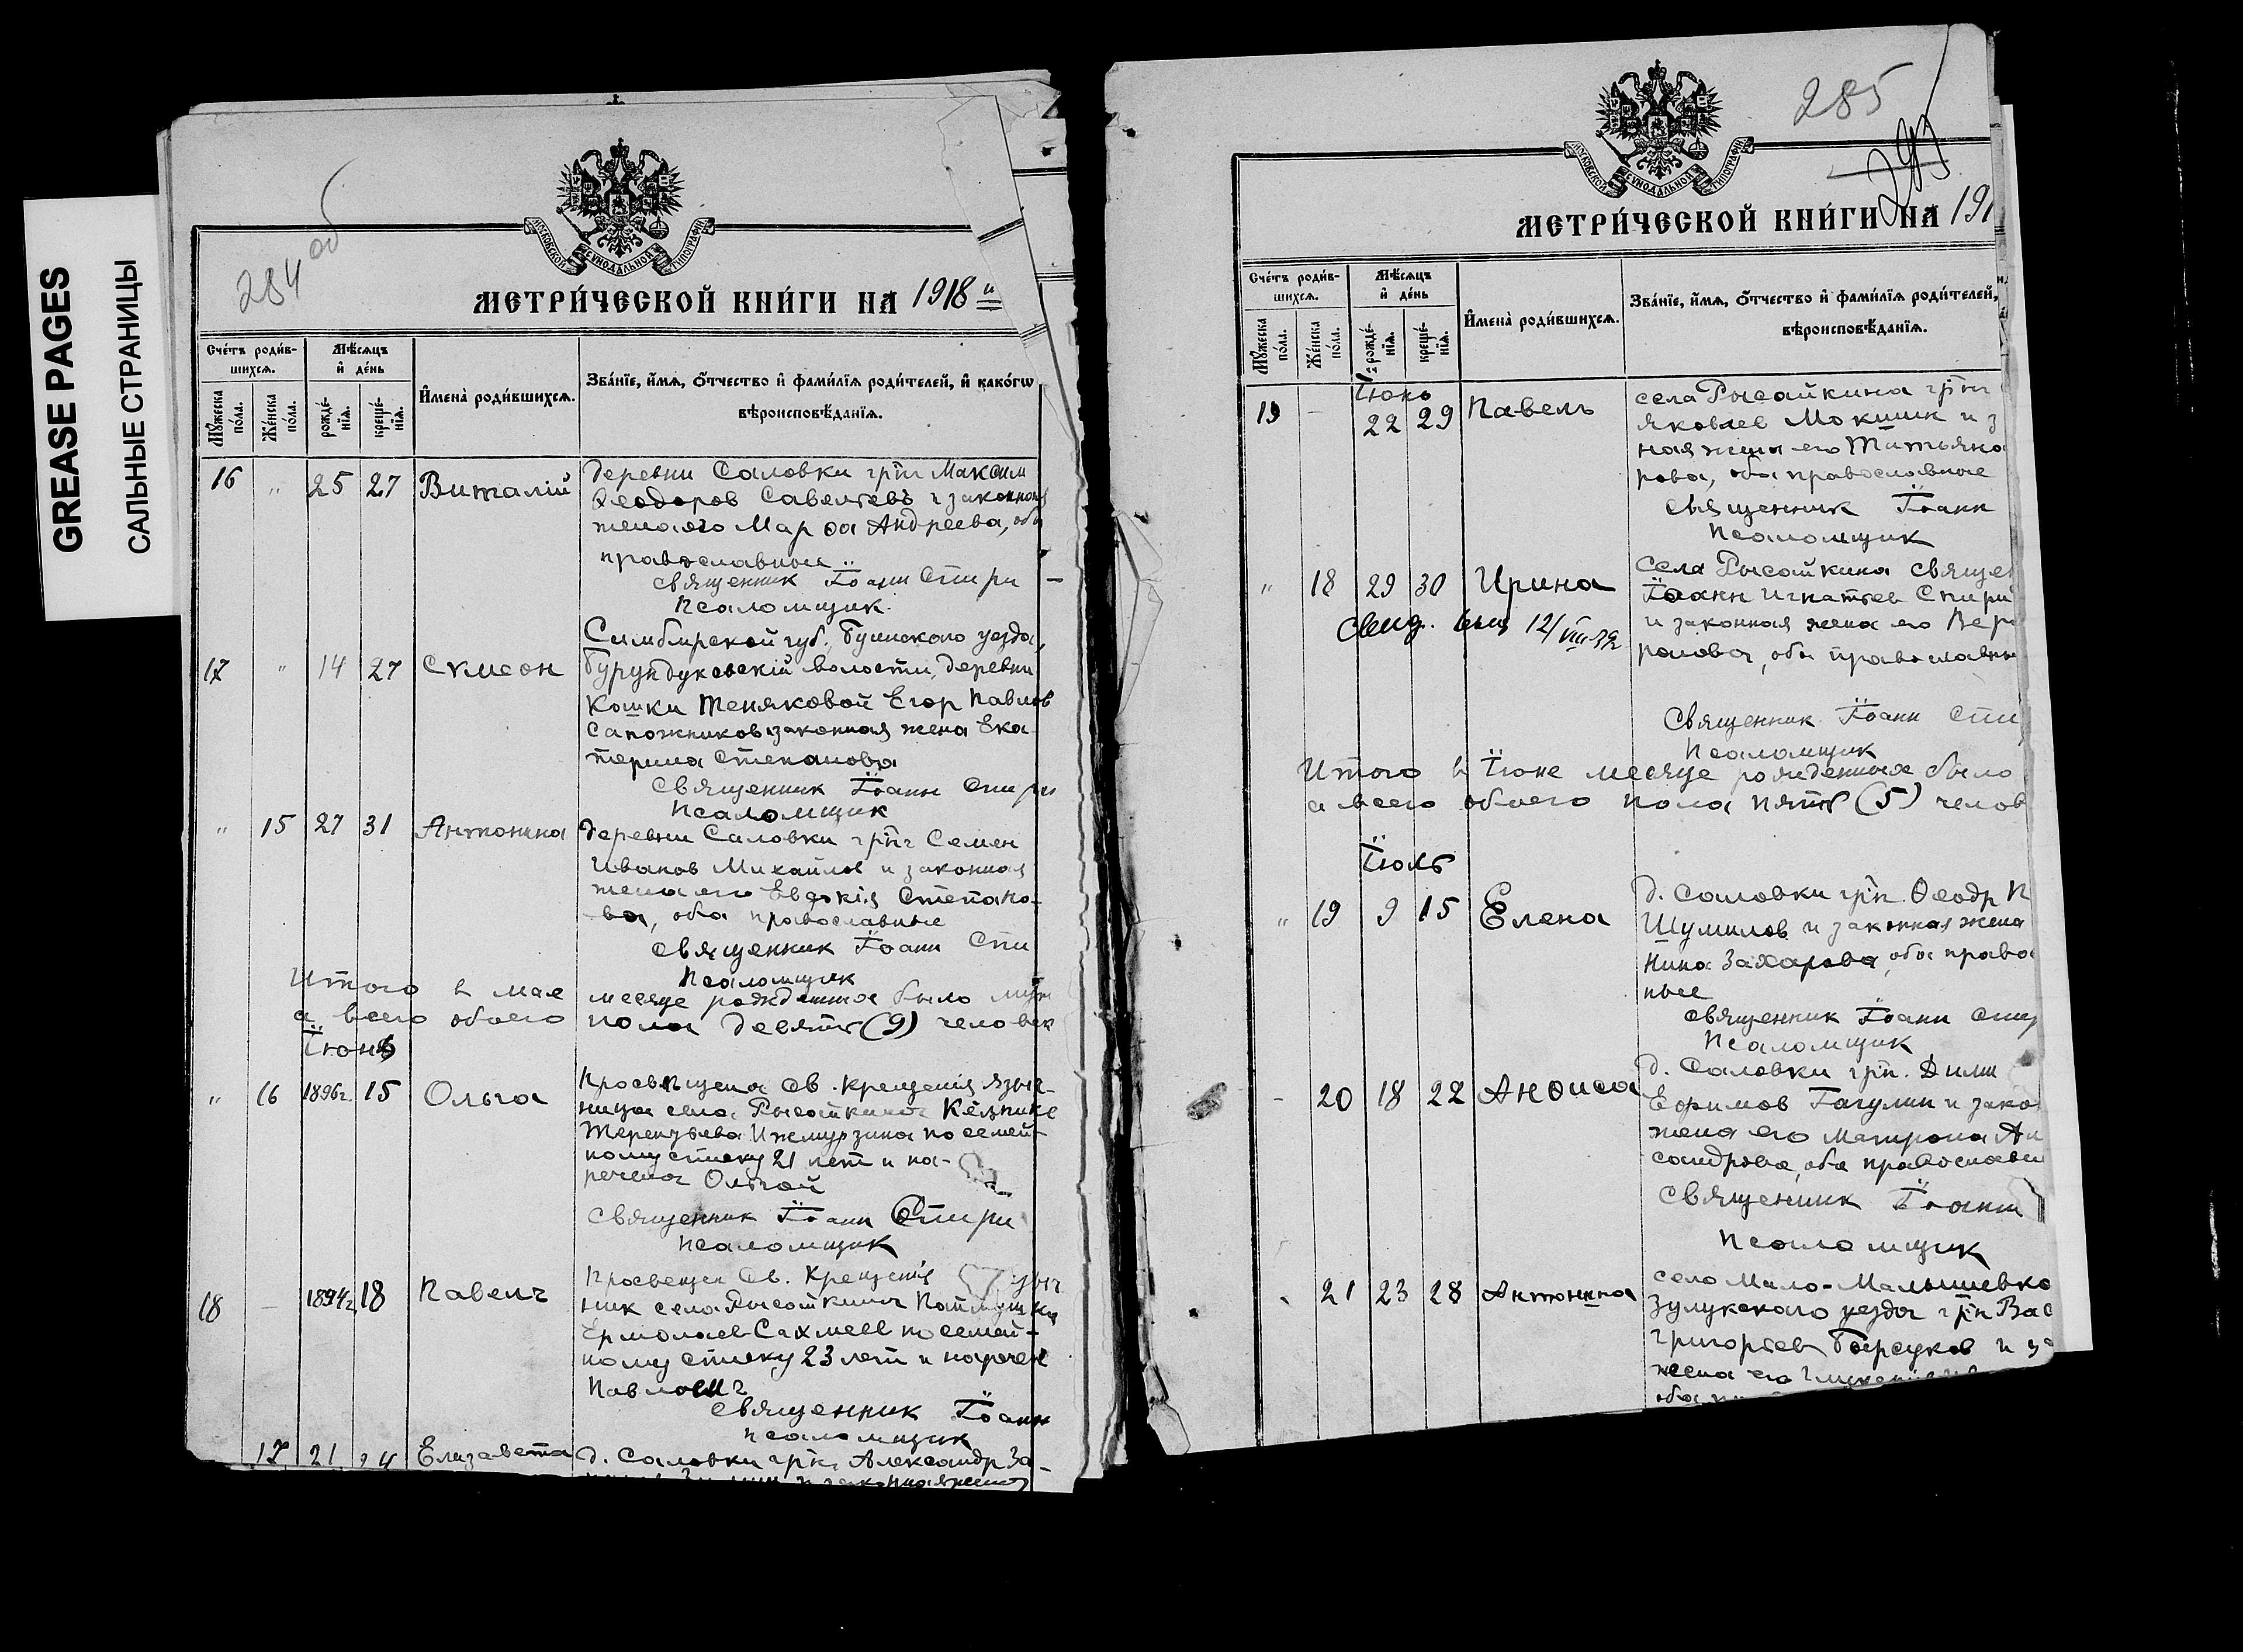 GREASE PAGES
САЛЬНЫЕ СТРАНИЦЫ
284 об
МОСКОВСКОЙ СѴНОДАЛЬНОЙ ТИПОГРАФІИ
МЕТРИ́ЧЕСКОЙ КНИ́ГИ НА 1918 й
Сче́тъ роди́в-
шихсѧ.
Мѣ́сѧцъ
и҆ де́нь
Мꙋ́жеска по́ла.
Же́нска по́ла.
рожде́-нїѧ.
креще́-нїѧ.
И҆мена̀ роди́вшихсѧ.
Зва́нїе, и҆́мѧ, ѻ҆́тчество и҆ фами́лїѧ роди́телей, и҆ како́гѡ
вѣроисповѣ́данїѧ.
16 " 25 27 Виталій
деревни Саловки гр̃н Максим
Ѳеодоров Савельевъ и законная
жена его Марѳа Андреева, оба
православные
Священник Іоанн Спири
Псаломщик.
17 " 14 27 Сѵмеон
Симбирской губ., Буинского уезда,
Бурундуковскій волости, деревни
Кошки Теняковой Егор Павлов
Сапожников законная жена Ека
терина Степанова
Священник Іоанн Спири
Псаломщик
" 15 27 31 Антонина
деревни Саловки гр̃н Семен
Иванов Михайлов и законная
жена его Евдокія Степано-
ва, оба православные
Священник Іоанн Спи
Псаломщик
Итого в мае месяце рожденных было муж
а всего обоего пола девять (9) человек
Іюнь
" 16 1896г. 15 Ольга
Просвещена Св. Крещенія языч-
ница села Рысайкина
Терентьева Ижмурзина по семей-
ному списку 21 лет и на-
речена Ольгой
Священник Іоанн Спири
Псаломщик
18 – 1894г. 18 Павелъ
Просвещен Св. Крещенія языч
ник села Рысайкина
Ермолаев Сахмеев по семей-
ному списку 23 лет и наречен
Павлом
Священник Іоанн
Псаломщик
17 21 24 Елизавета
д. Саловки гр̃н Александр За-
285
295
МОСКОВСКОЙ СѴНОДАЛЬНОЙ ТИПОГРАФІИ
МЕТРИ́ЧЕСКОЙ КНИ́ГИ НА 191
Сче́тъ роди́в-
шихсѧ.
Мѣ́сѧцъ
и҆ де́нь
Мꙋ́жеска по́ла.
Же́нска по́ла.
рожде́-нїѧ.
креще́-нїѧ.
И҆мена̀ роди́вшихсѧ.
Зва́нїе, и҆́мѧ, ѻ҆́тчество и҆ фами́лїѧ роди́телей,
вѣроисповѣ́данїѧ.
Іюнь
19 – 22 29 Павелъ
села Рысайкина гр̃н
Яковлев Мокшин и з
ная жена его Татьяна
рова, оба православные
Священник Іоанн
Псаломщик
" 18 29 30 Ирина
Села Рысайкина священ
Іоанн Игнатьев Спири
и законная жена его Вера
ролова, оба православн
Свид. выд 12/VIII
Священник Іоанн Спи
Псаломщик
Итого в Іюне месяце рожденных было
а всего обоего пола пять (5) челов
Іюль
" 19 9 15 Елена
д. Саловки гр̃н. Ѳеодр П
Шумилов и законная жена
Нина Захарова, оба право
ные
Священник Іоанн Спир
Псаломщик
- 20 18 22 Анѳиса
д. Саловки гр̃н. Дими
Ефимов Гагулин и зако
жена его Матрона Ан
сандрова, оба православн
Священник Іоанн
Псаломщик
21 23 28 Антонина
село Мало-Малышевка
зулукского уезда гр̃н Вас
Григорьев Барсуков и за
жена его